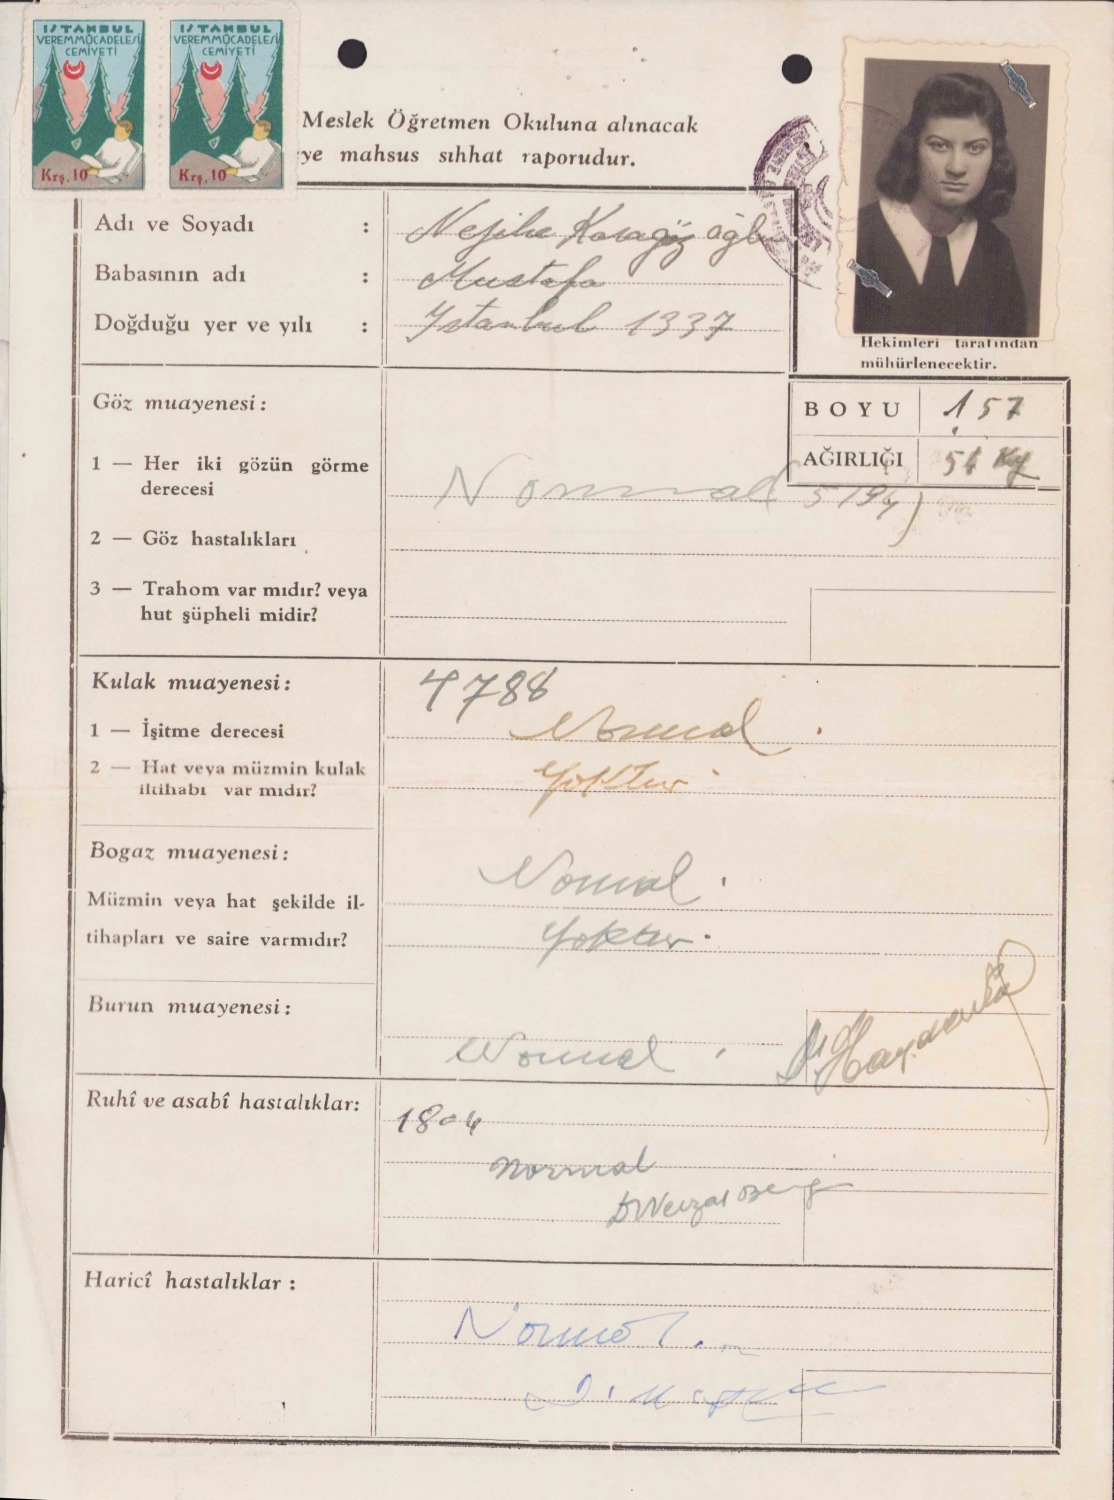 İSTANBUL
VEREM MÜCADELESİ
CEMİYETİ
Krş. 10
İSTANBUL
VEREM MÜCADELESİ
CEMİYETİ
Krş. 10
Meslek Öğretmen Okuluna alınacak
ye mahsus sıhhat raporudur.
Adı ve Soyadı : Nefihe Karagöz oğlu
Babasının adı : Mustafa
Doğduğu yer ve yılı : Istanbul 1337
Hekimleri tarafından
mühürlenecektir.
BOYU 157
AĞIRLIĞI 54 Kg
Göz muayenesi :
1 — Her iki gözün görme
derecesi
Normal
2 — Göz hastalıkları
3 — Trahom var mıdır? veya
hut şüpheli midir?
Kulak muayenesi : 4788
1 — İşitme derecesi Normal .
2 — Hat veya müzmin kulak Yoktur
iltihabı var mıdır?
Bogaz muayenesi :
Normal .
Müzmin veya hat şekilde il-
tihapları ve saire varmıdır? Yoktur .
Burun muayenesi :
Normal .
Ruhî ve asabî hastalıklar: 1804
Normal
Haricî hastalıklar :
Normal .